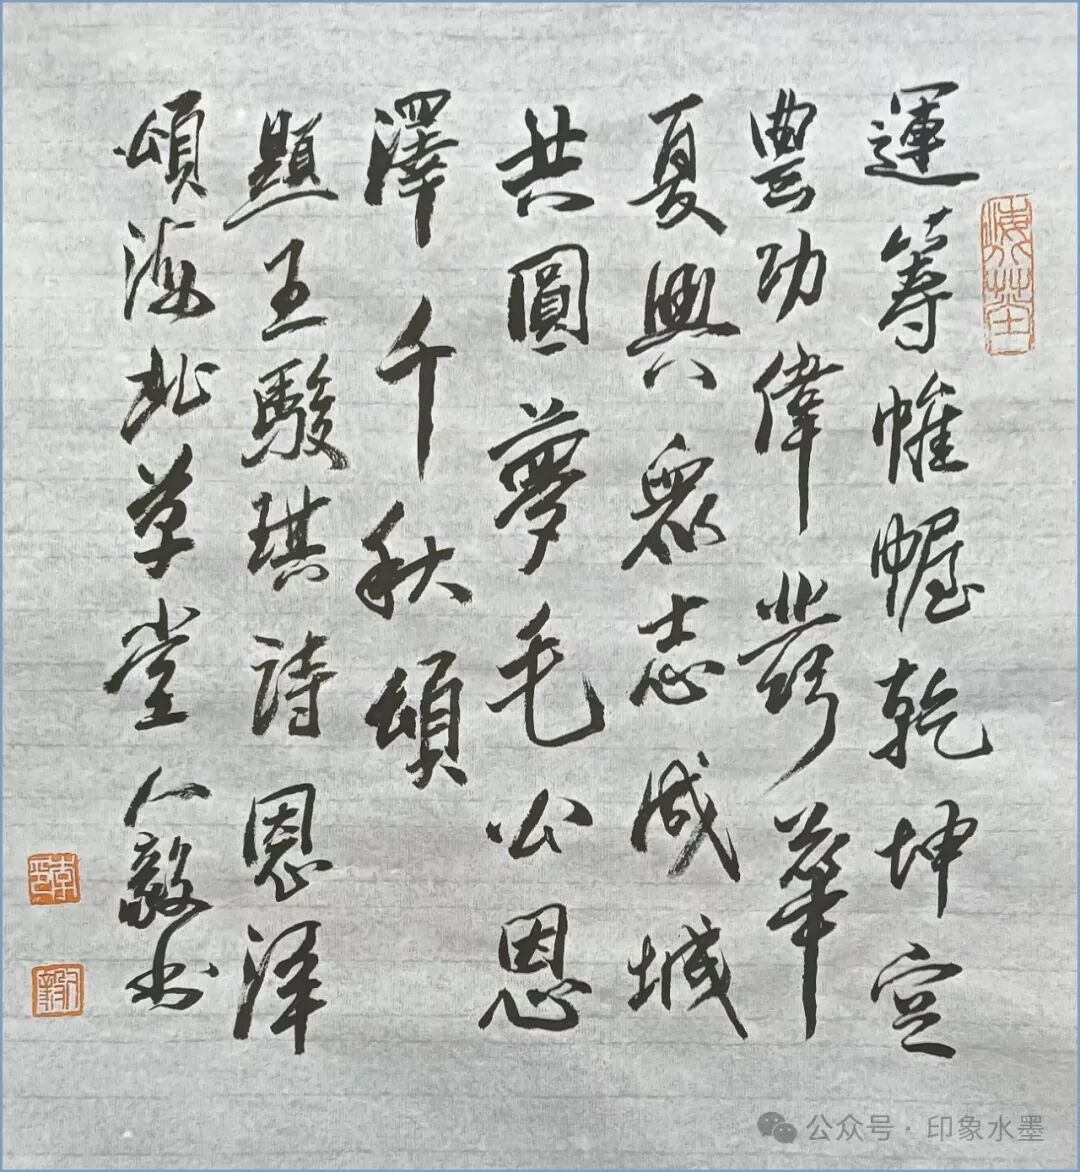 運籌帷幄乾坤定
豐功偉業誇華
夏興眾志成城
共圓夢毛公恩
澤千秋頌
題王駿琪詩恩泽
頌海北草堂人毅书
公众号·印象水墨